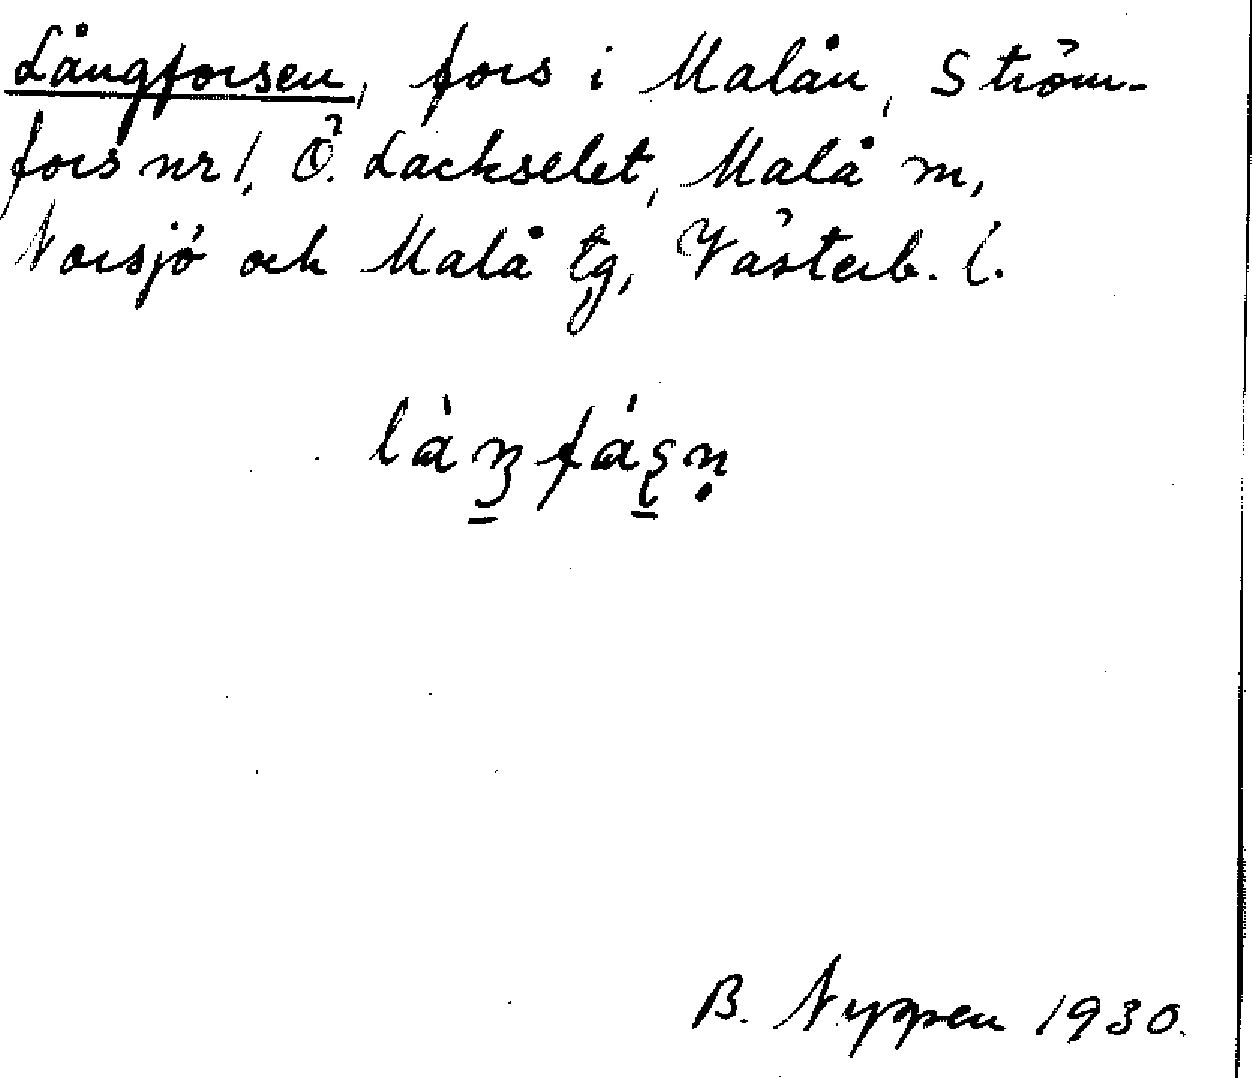 Långforsen, fors i Malån, Ström-
fors nr 1, Ö. Lackselet, Malå m,
Norsjö och Malå tg, Västerb. l.
B. Nyppen 1930.